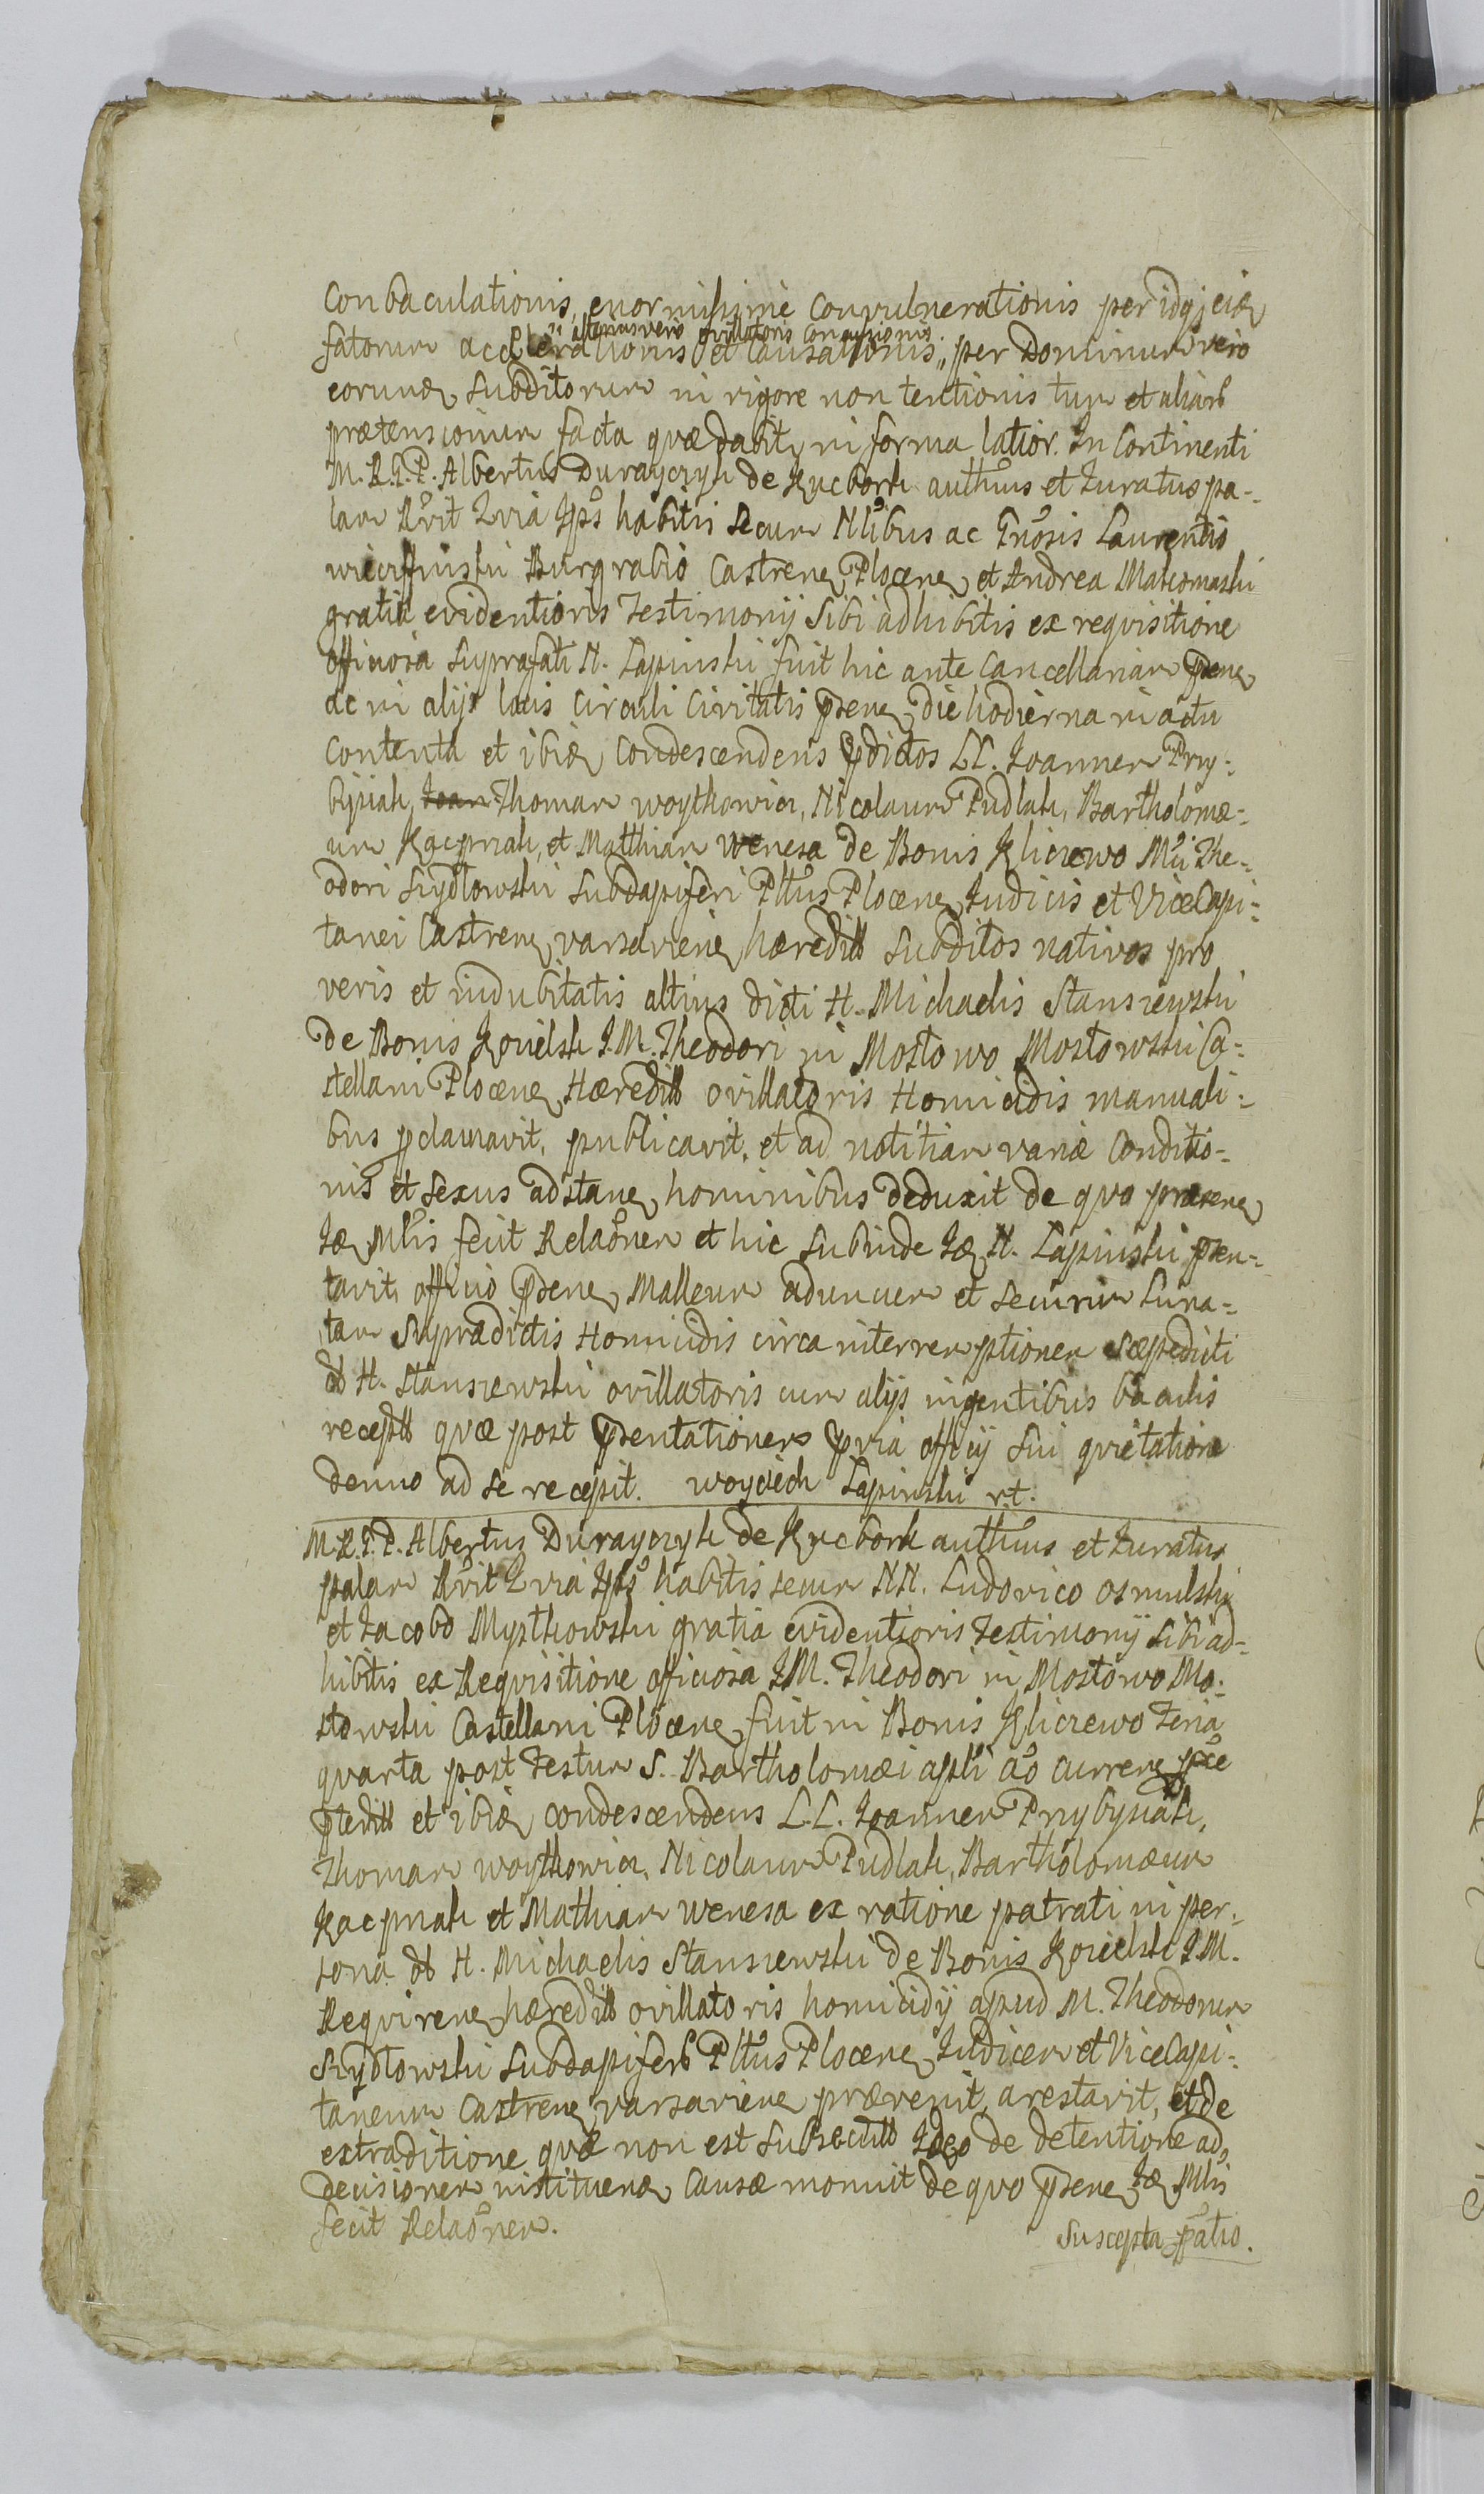 Conbaculationis, enormissime Convulnerationis per idq; eiq
fatorum accelerationis et Causationis, per Dominum vero
" alterius vero ovillatoris Concussionis
eorunq subditorum in rigore non tentionis tum et aliarb
prætensionum facta quæ dabit, in forma latior. In Continenti
M. R. G. P. Albertus Durayczyk de Kucbork authus et Juratus pa-
lam Rvit habitis secum Nlibus ac Gnosis Laurentio
Burgrabio Castrenq Plocenq et Andrea
gratia evidentioris Testimonij sibi adhibitis ex requisitione
officiosa suprafati N. Lapinski fuit hic ante Cancellariam psenq
ac in alijs locis circuli Civitatis psenq die hodierna in actu
Contenta et ibiq Condescendens pdictos LL. Joannem Przy-
bysiak, Joan Thomam woythowicz, Nicolaum Pudlak, Bartholomæ-
um Kacprzak, et Matthiam Wenesa de Bonis Kliczewo Mci The-
odori Szydłowski Subdapiferi Pltus Plocenq Judicis et ViceCapi-
tanei Castrenq varsavienq hæreditt subditos nativos pro
veris et indubitatis altius dicti H. Michaelis Stanszewski
de Bonis J. M. Theodori in Mostowo Mostowski Ca-
stellani Plocenq Hæreditt ovillatoris Homicidis manuali-
bus pclamavit, publicavit, et ad notitiam variæ Conditio-
nis et sexus adstanq hominibus deduxit de quo præsenq
Jq Mlis fecit Relaonem et hic subinde Jq N. Lapinski psen-
tavit officio psenq Malleum aduncum et securim Luna-
tam Supradictis Homicidis circa interremptionem sæpedicti
ol H. Stanszewski ovillatoris cum alijs ingentibus baculis
receptt quæ post psentationem pvia officij sui quietatione
denuo ad se recepit. woyciech Lapinski r.t.
M. R. G. P. Albertus Durayczyk de Kucbork authus et Juratus
palam Rvit habitis secum NN. Ludovico Osmulski
et Jacobo Mystkowski gratia evidentioris Testimonij sibi ad-
hibitis ex Requisitione officiosa J M. Theodori in Mostowo Mo-
stowski Castellani Plocenq fuit in Bonis Kliczewo Feria
quarta post Festum S. Bartholomæi apli ao currenq
pteritt et ibiq condescendens L. L. Joannem Przybysiak,
Thomam woythowicz, Nicolaum Pudlak, Bartholomæum
Kacprzak et Mathiam wenesa ex ratione patrati in per-
sona ol H. Michaelis Stanszewski de Bonis J. M.
Requirenq hæreditt ovillatoris homicidij apud M. Theodorum
Szydłowski Subdapiferb Pltus Plocenq Judicem et ViceCapi-
taneum Castrenq varsavienq prævenit, arestavit, et de
extraditione quæ non est subsecutt Ideo de detentione ad
decisionem instituenq Causæ monuit de quo psenq Jq Mlis
fecit Relaonem.
Suscepta patio.